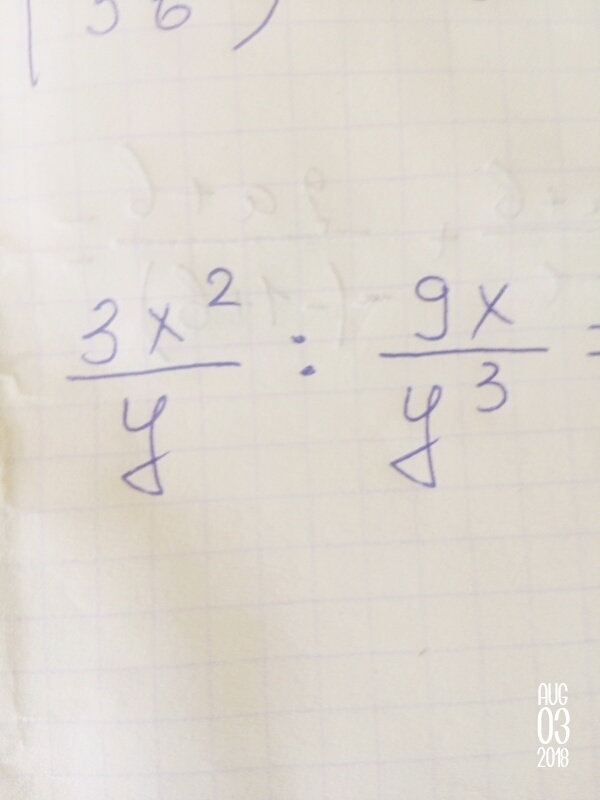 3x²/y : 9x/y³ =
AUG
03
2018